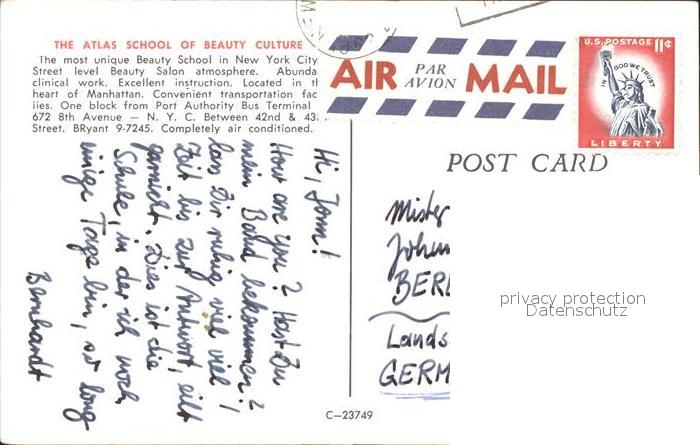 THE ATLAS SCHOOL OF BEAUTY CULTURE
The most unique Beauty School in New York City
Street level Beauty Salon atmosphere. Abunda
clinical work. Excellent instruction. Located in th
heart of Manhattan. Convenient transportation fac
lies. One block from Port Authority Bus Terminal
672 8th Avenue — N. Y. C. Between 42nd & 43
Street. BRyant 9-7245. Completely air conditioned.
AIR PAR AVION MAIL
U.S. POSTAGE 11¢
IN GOD WE TRUST
LIBERTY
POST CARD
Hi,
How are you? Hast Du
mein Bild bekommen?
Lass Dir ruhig viel viel
Zeit bis zur Antwort, eilt
garnicht. Dies ist die
Schule, in der ich noch
einige Tage bin, so long
Bernhardt
Mister
Johan
BERL
Lands
GERM
privacy protection
Datenschutz
C-23749